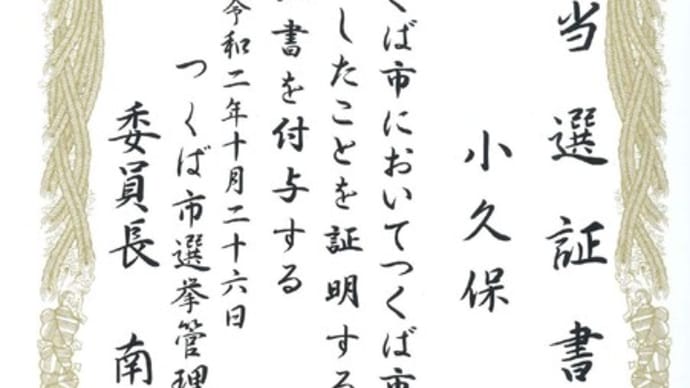 当選証書
小久保
くば市においてつくば市
したことを証明する
書を付与する
令和二年十月二十六日
つくば市選挙管理
委員長 南